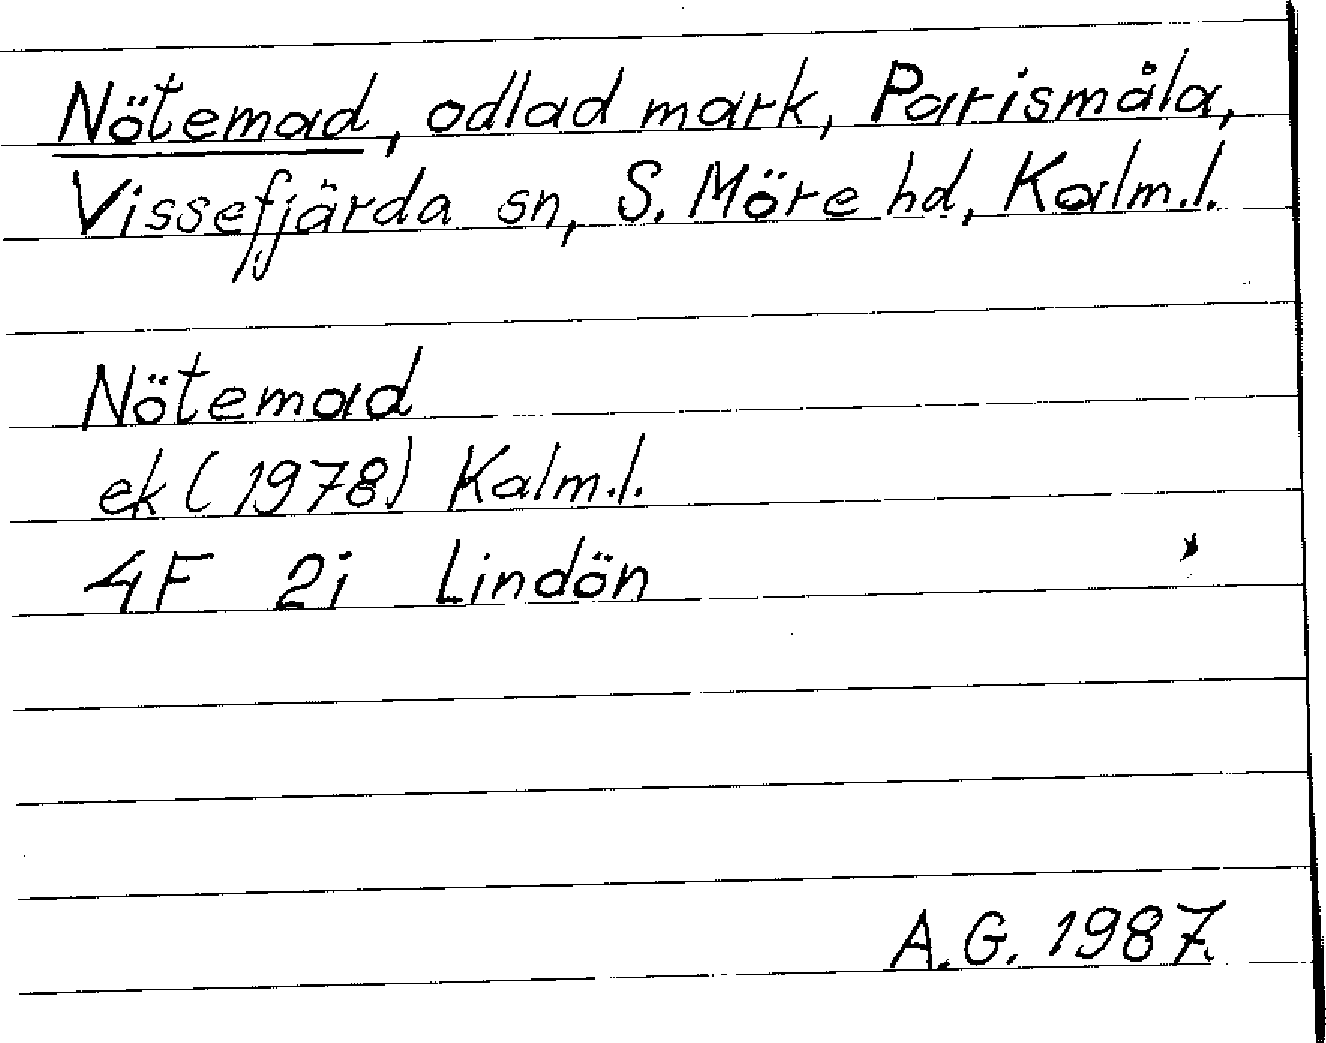 Nötemad, odlad mark, Parismåla,
Vissefjärda sn, S. Möre hd, Kalm.l.
Nötemad
ek (1978) Kalm.l.
4F 2i Lindön
A.G. 1987.